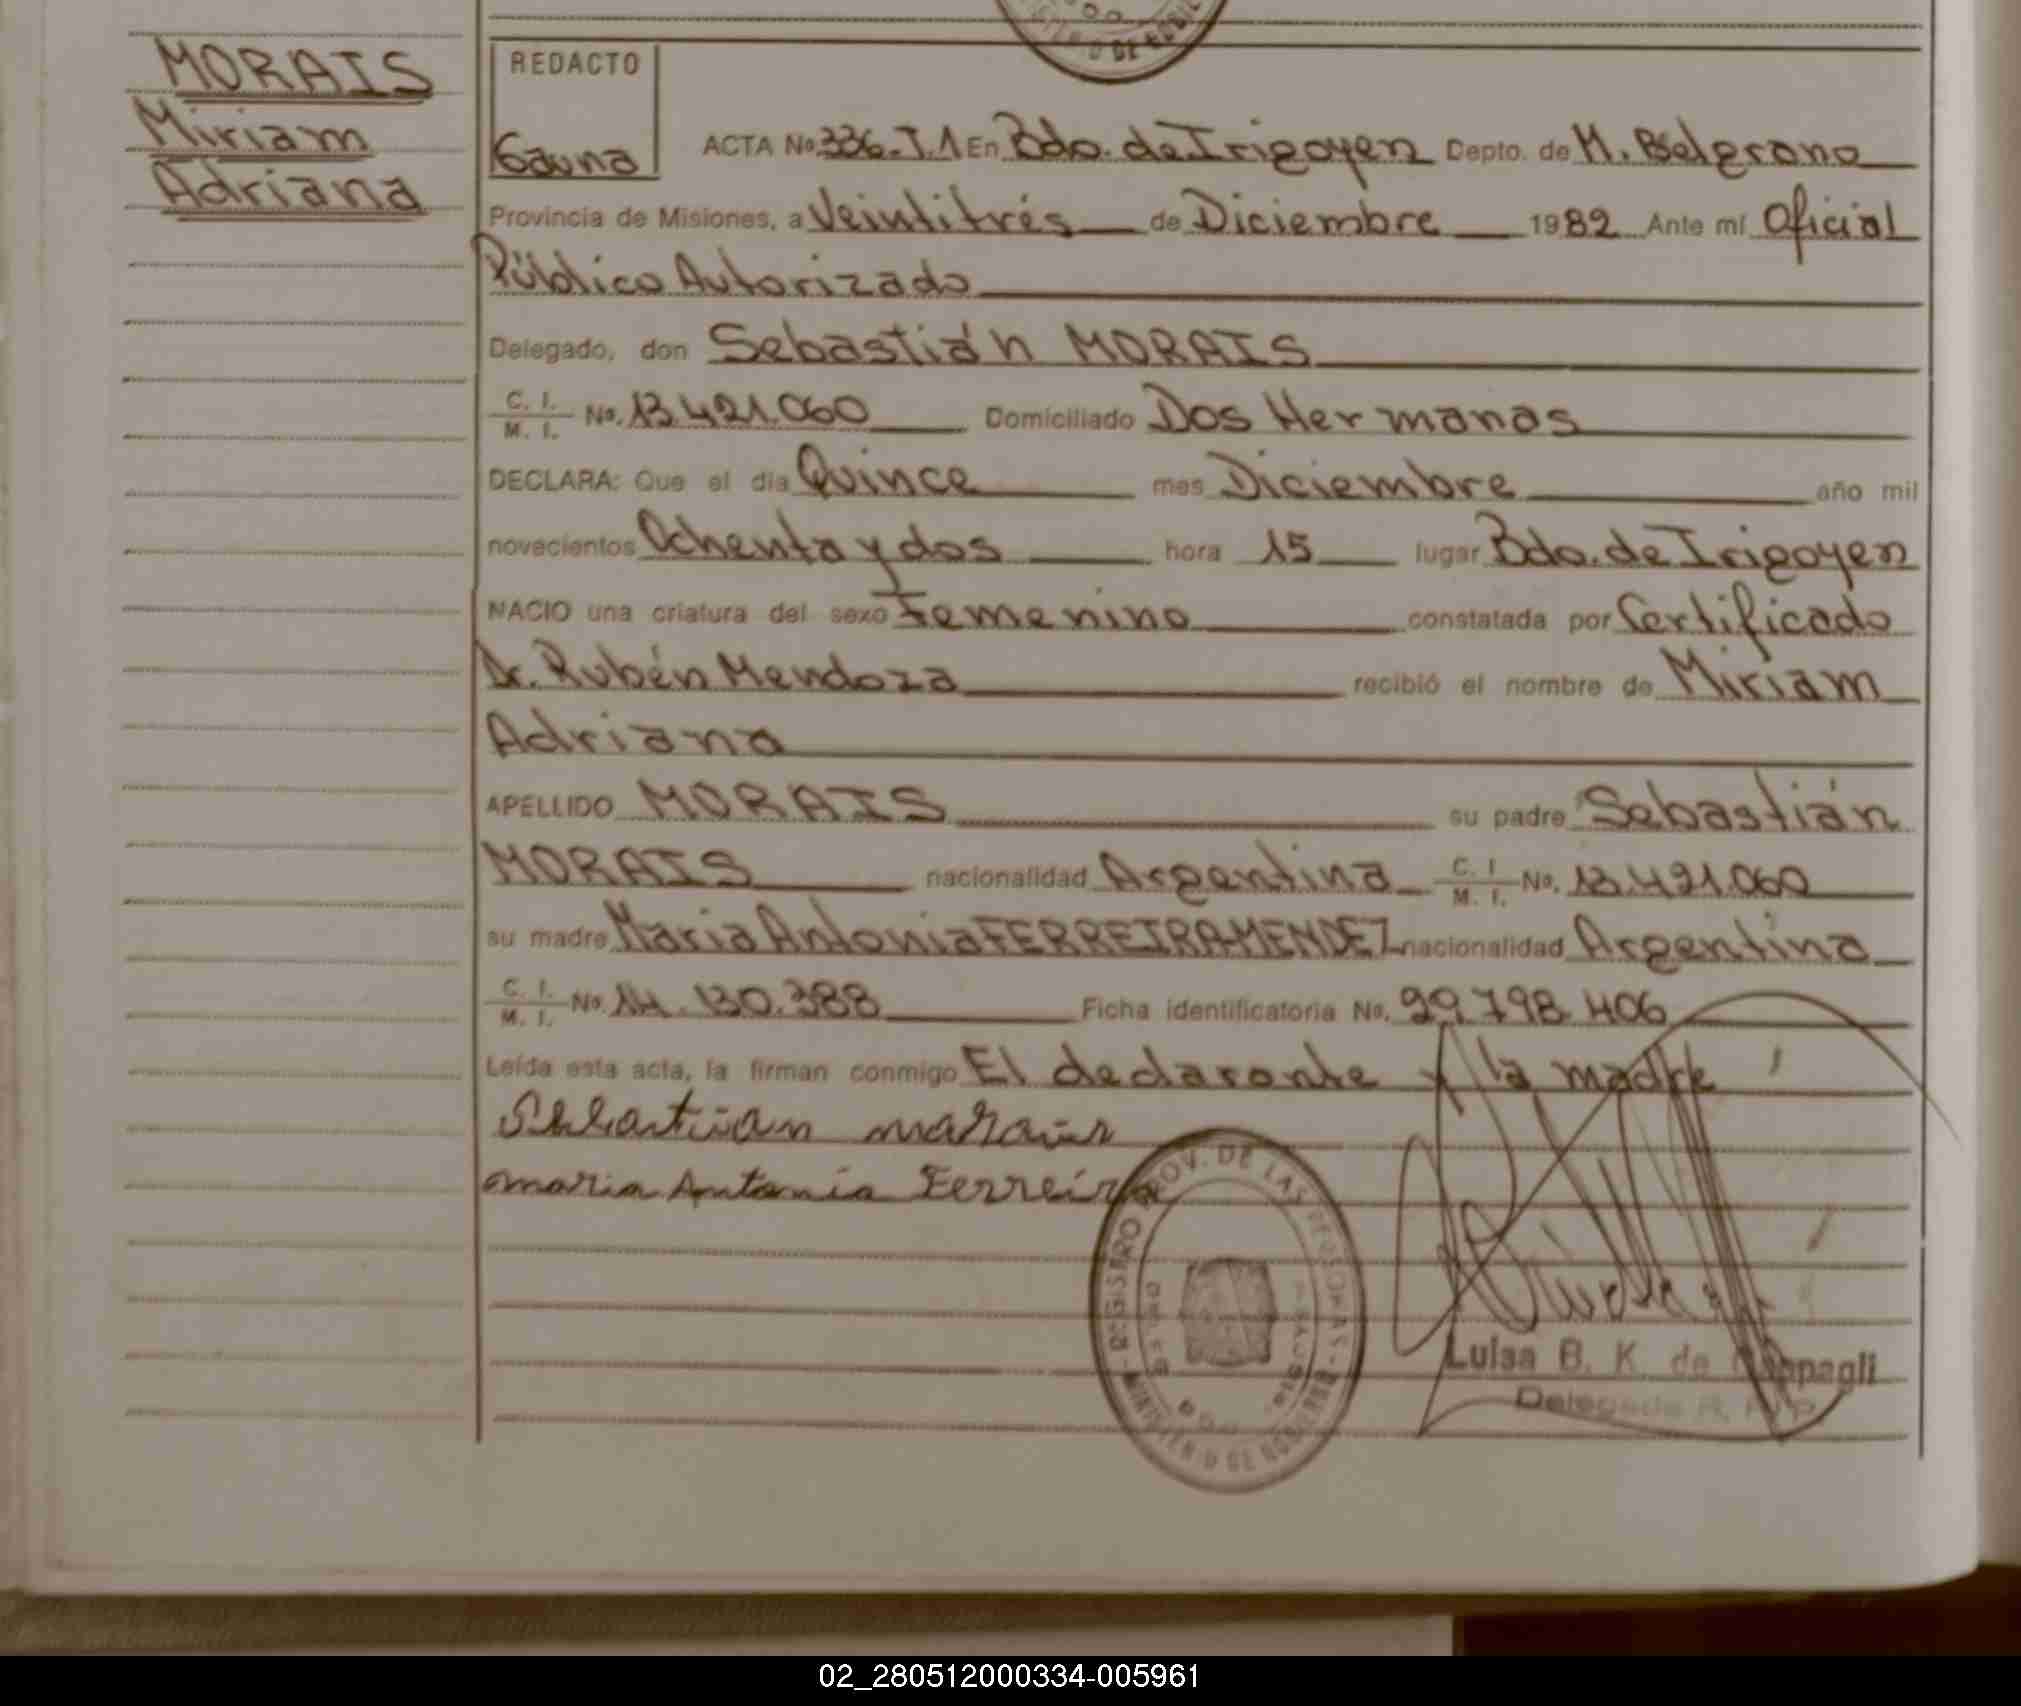 MORAIS
Miriam
Adriana
REDACTO
Gauna
ACTA Nº 336-T.1 En Bdo. de Irigoyen Depto. de M. Belgrano
Provincia de Misiones, a Veintitrés de Diciembre 1982 Ante mí Oficial
Público Autorizado
Delegado, don Sebastián MORAIS
C. I. / M. I. No. 13.421.060 Domiciliado Dos Hermanas
DECLARA: Que el día Quince mes Diciembre año mil
novecientos Ochenta y dos hora 15 lugar Bdo. de Irigoyen
NACIO una criatura del sexo Femenino constatada por Certificado
Dr. Rubén Mendoza recibió el nombre de Miriam
Adriana
APELLIDO MORAIS su padre Sebastián
MORAIS nacionalidad Argentina C. I / M. I. No. 13.421.060
su madre Maria Antonia FERREIRA-MENDEZ nacionalidad Argentina
C. I. / M. I. No. 14.130.388 Ficha identificatoria No. 29.798.406
Leída esta acta, la firman conmigo El declarante y la madre
Sebastian morais
maria Antonia Ferreira
REGISTRO PROV. DE LAS PERSONAS
MINISTERIO DE GOBIERNO
Luisa B. K. de
Delegada R. P. P.
02_280512000334-005961